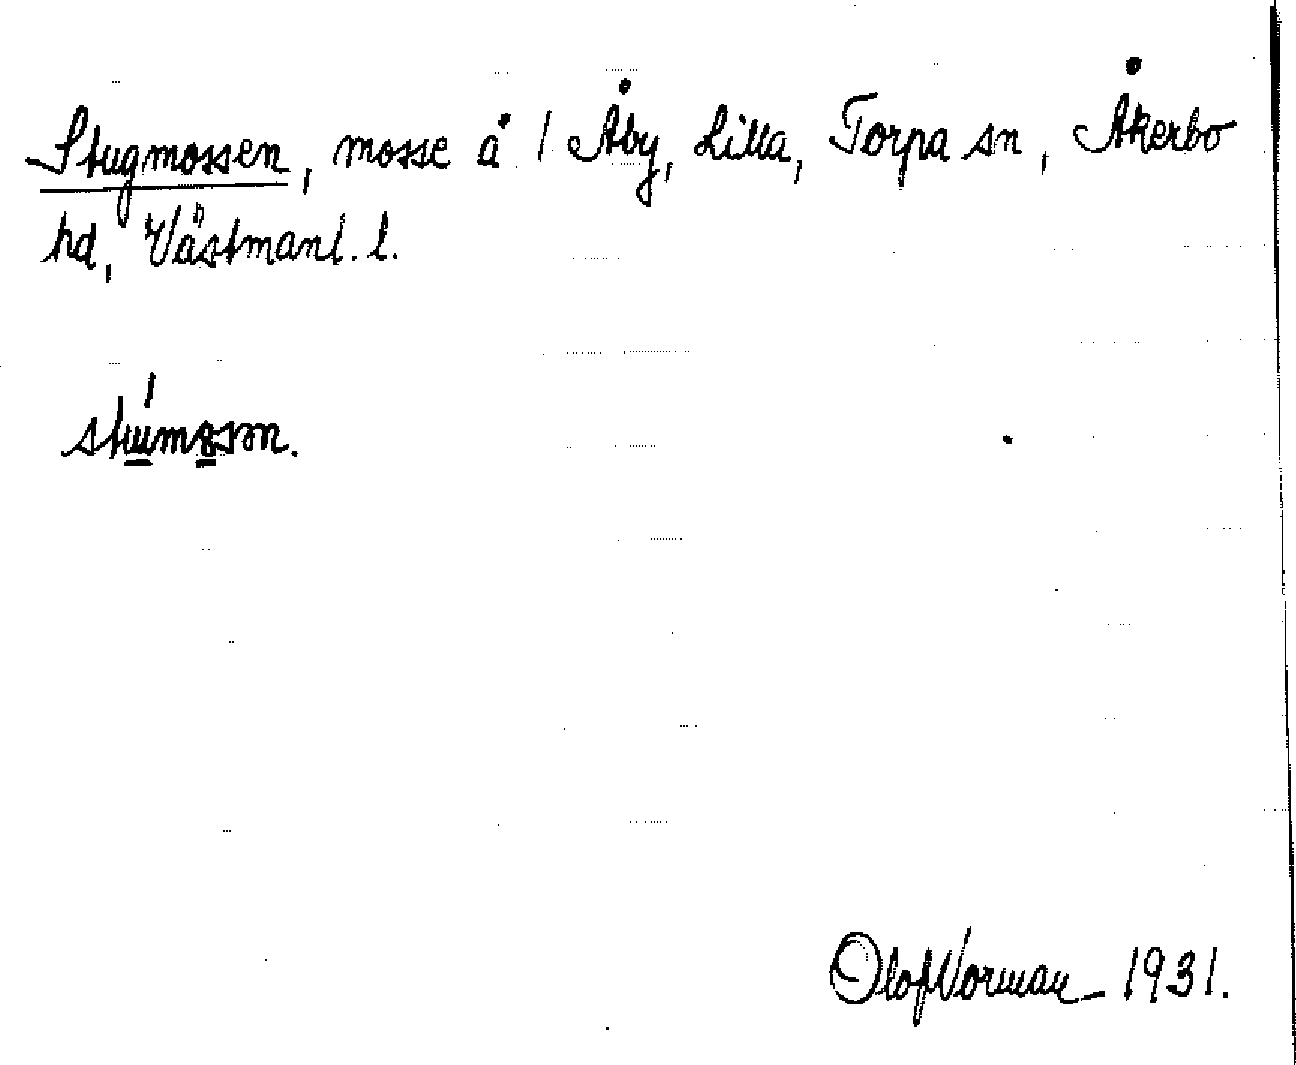 Stugmossen, mosse å / Åby, Lilla, Torpa sn, Åkerbo
hd, Västmanl. l.
Olof Vorman 1931.